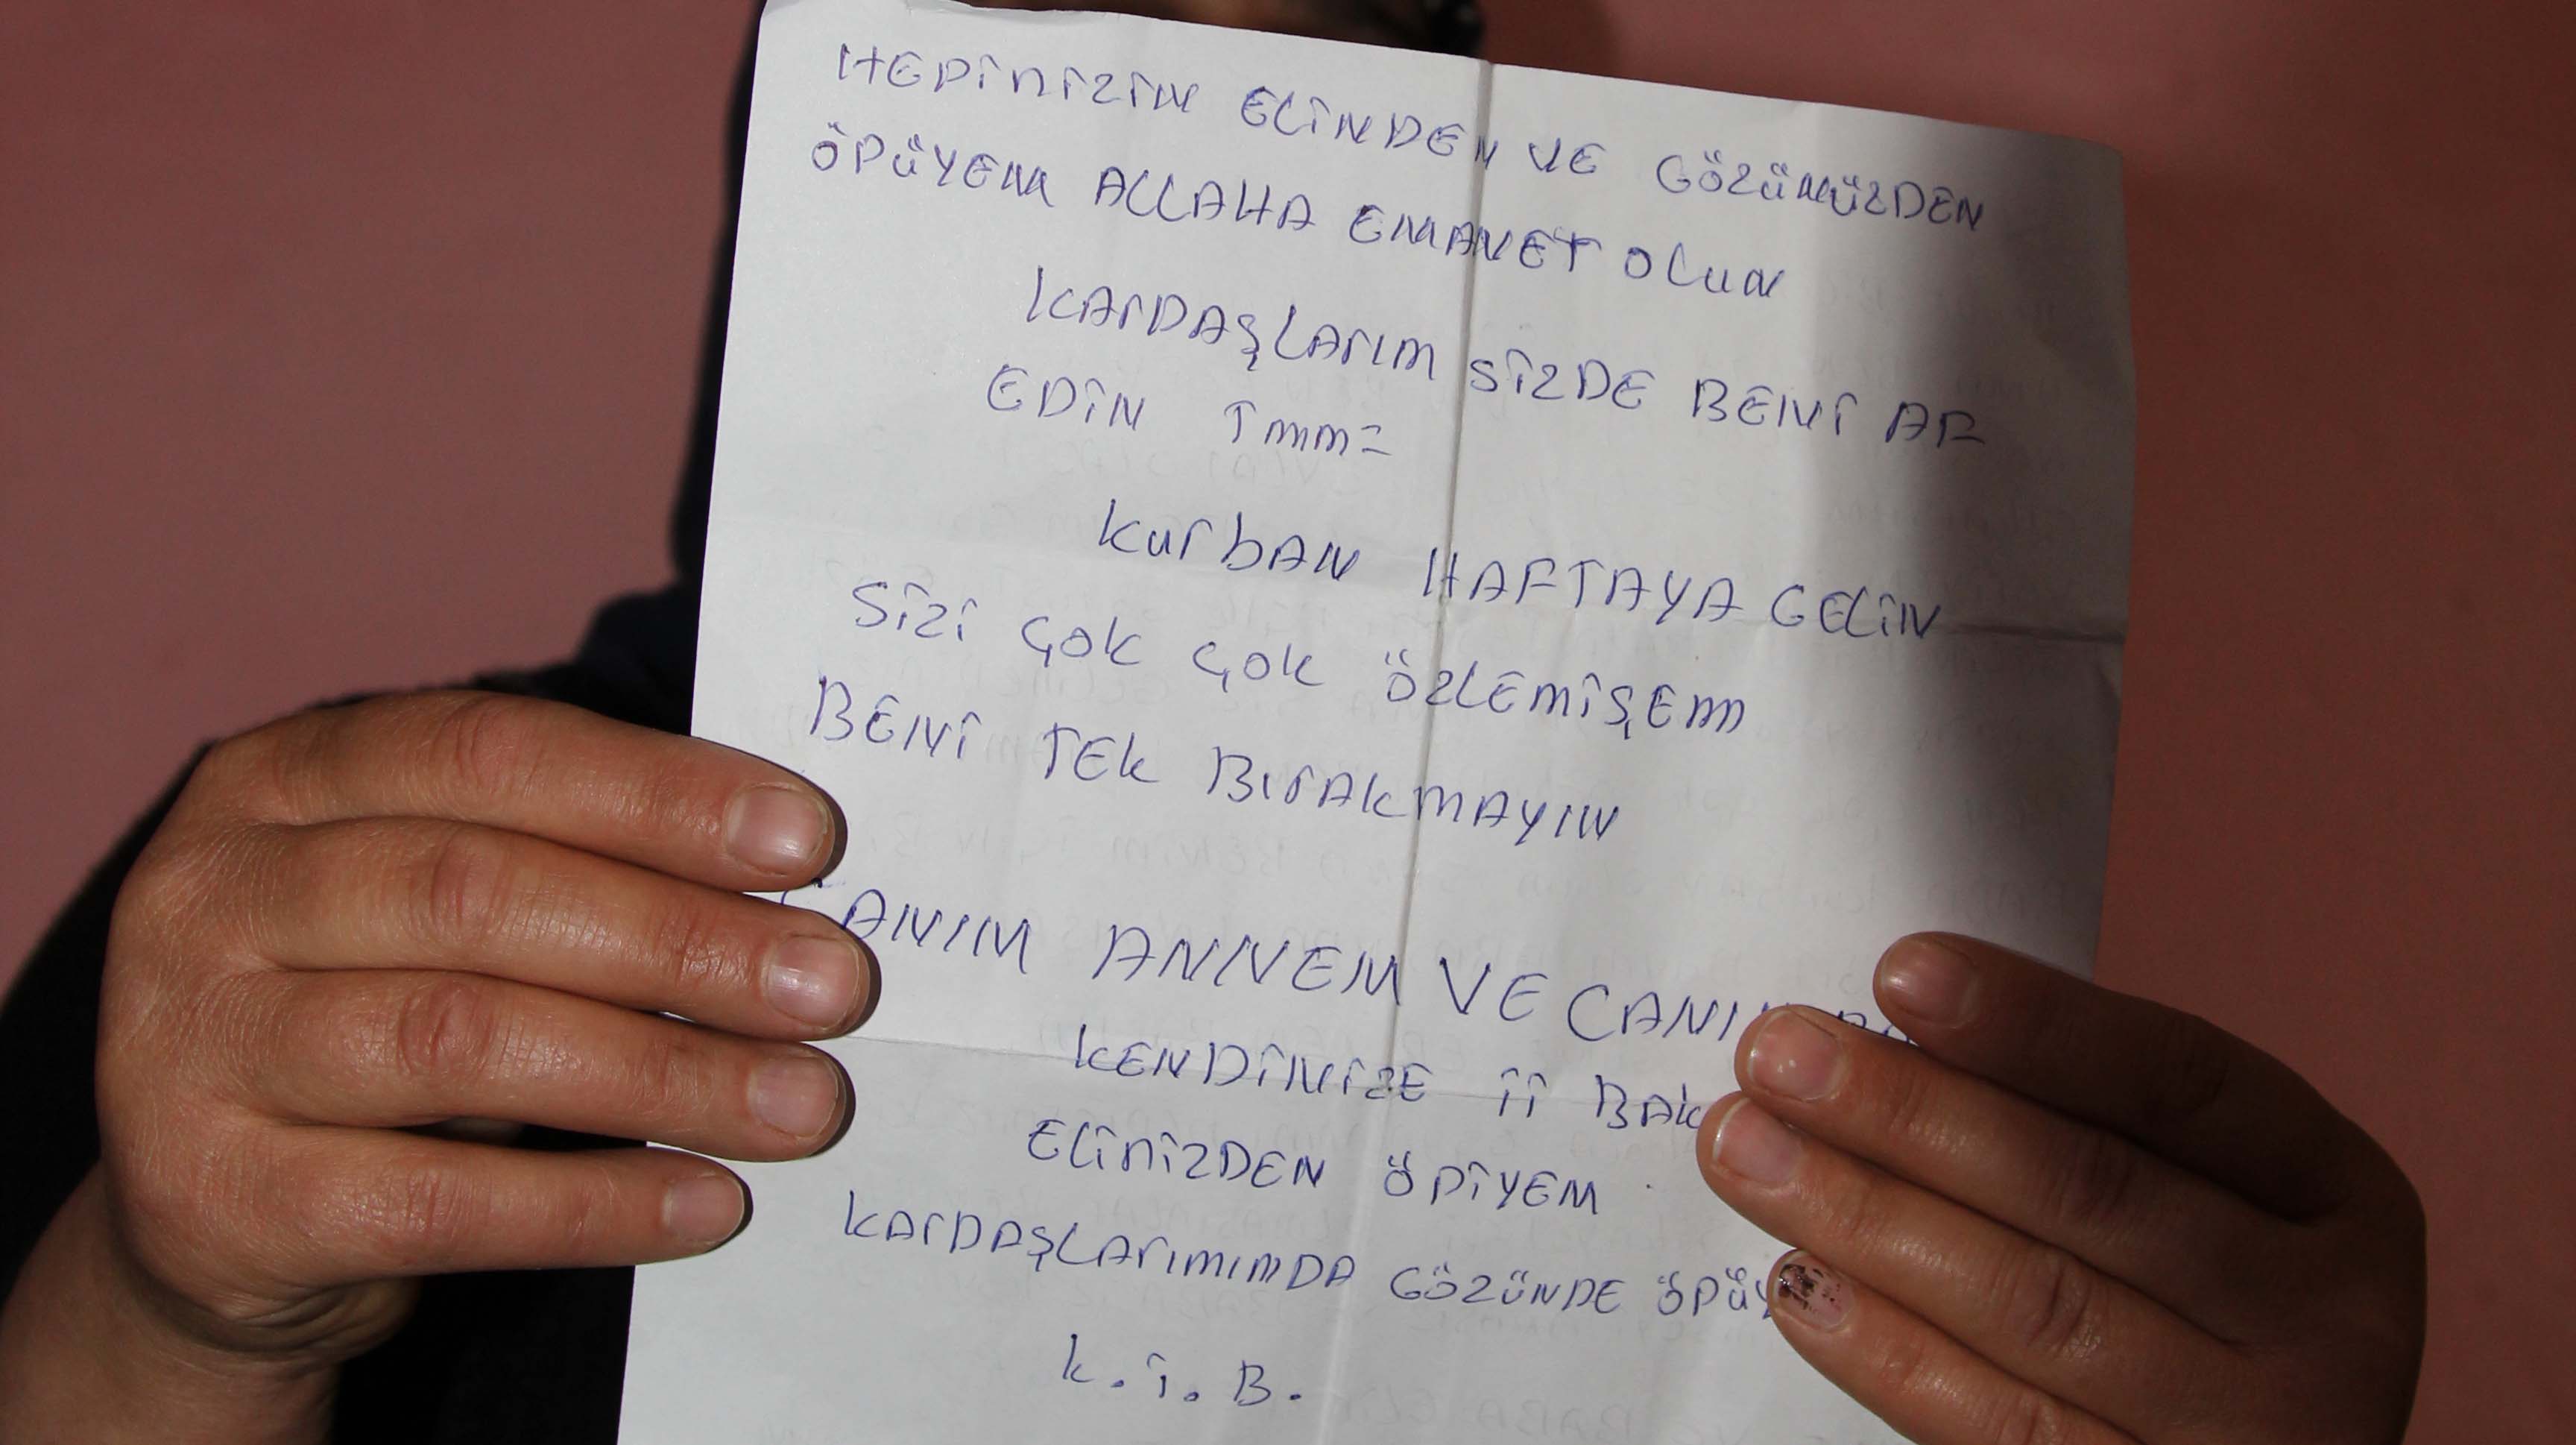 HEPİNİZİN ELİNDEN VE GÖZÜNÜZDEN
ÖPÜYEM ALLAHA EMANET OLUN
KArDAŞLArIM SİZDE BENİ AF
EDİN Tmm=
KurbAN HAFTAYA GELİN
SİZİ ÇOK ÇOK ÖZLEMİŞEM
BENİ TEK BIrAKMAYIN
CANIM ANNEM VE
KENDİNİZE İİ BAK
ELİNİZDEN ÖPİYEM
KArDAŞLArIMINDA GÖZÜNDE
K.İ.B.